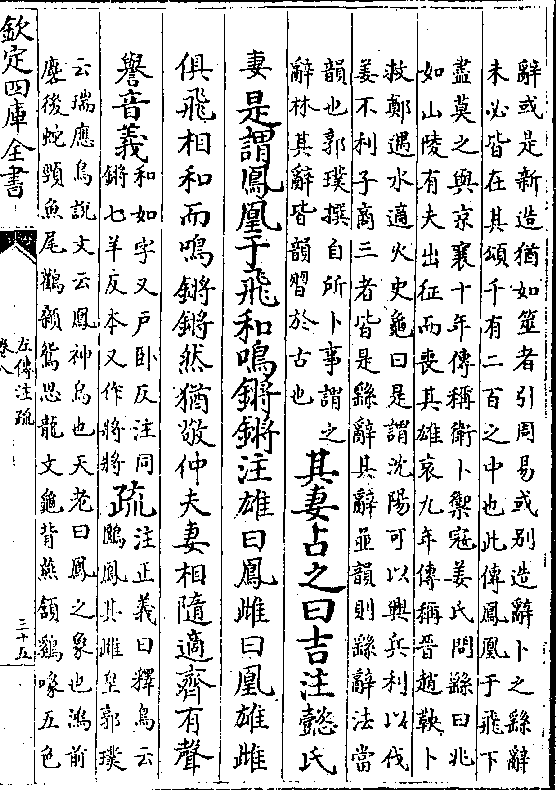 辭或是新造猶如筮者引周易或别造辭卜之繇辭
未必皆在其頌千有二百之中也此傳鳳凰于飛下
盡莫之與京襄十年傳稱衛卜禦寇姜氏問繇曰兆
如山陵有夫出征而喪其雄哀九年傳稱晉趙鞅卜
救鄭遇水適火史龜曰是謂沈陽可以興兵利以伐
姜不利子商三者皆是繇辭其辭並韻則繇辭法當
韻也郭璞撰自所卜事謂之
辭林其辭皆韻習於古也
其妻占之曰吉注懿氏
妻是謂鳳凰于飛和鳴鏘鏘注雄曰鳳雌曰凰雄雌
俱飛相和而鳴鏘鏘然猶敬仲夫妻相隨適齊有聲
譽音義
和如字又戶卧反注同
鏘七羊反本又作將將
疏
注正義曰釋鳥云
鶠鳳其雌皇郭璞
云瑞應鳥說文云鳳神鳥也天老曰鳳之象也鴻前
麐後蛇頸魚尾鸛顙鴛思龍文龜背燕頷鷄喙五色
欽定四庫全書
左傳注疏
卷八
三十五